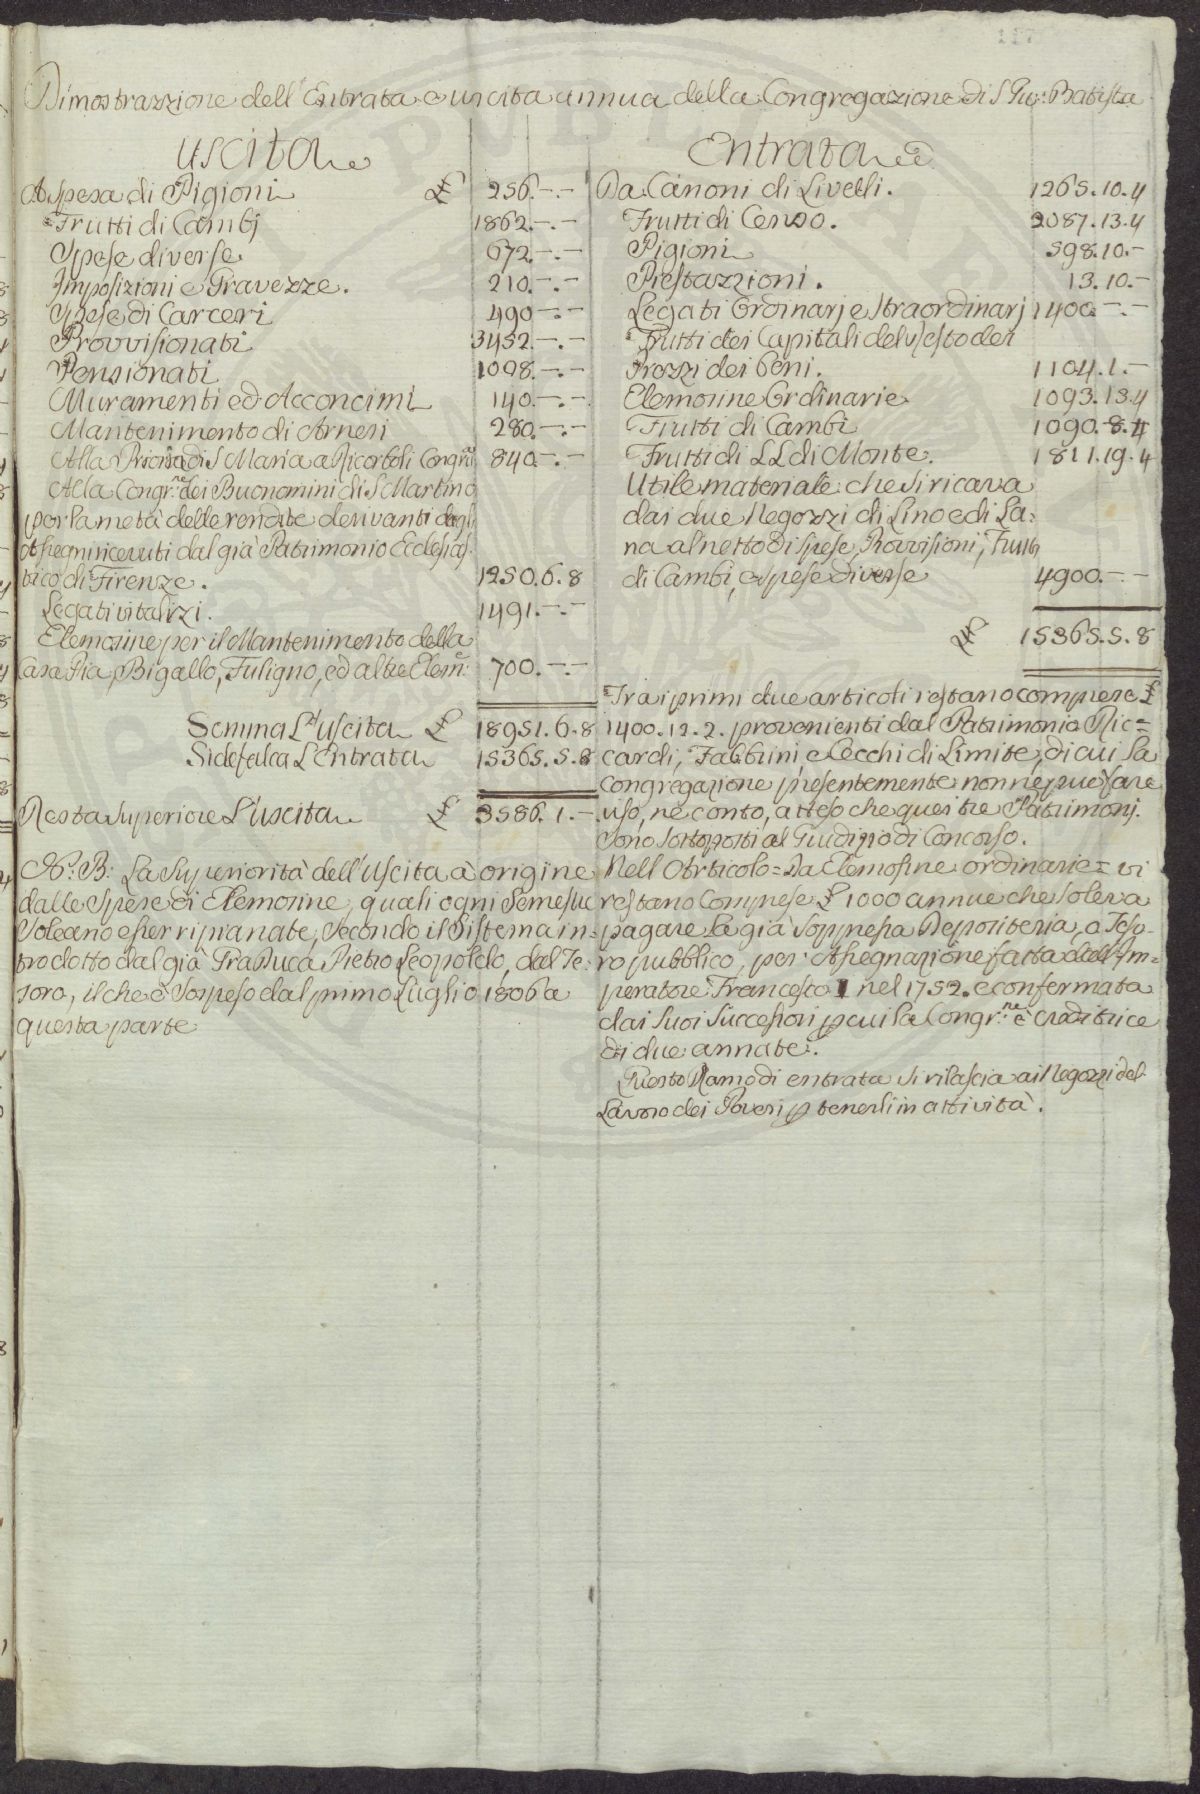 117
Dimostrazzione dell'Entrata e uscita annua della Congregazione di S Gio: Batista
Uscita
A spesa di Pigioni £ 256.-.-
Frutti di Cambj 1862.-.-
Spese diverse 672.-.-
Imposizioni e Gravezze. 210.-.-
Spese di Carceri 490.-.-
Provvisionati 3452.-.-
Pensionati 1098.-.-
Muramenti ed Acconcimi 140.-.-
Mantenimento di Arnesi 280.-.-
Alla Prioria di S Maria a Ricorboli Congrua 840.-.-
Alla Congr.ne dei Buonomini di S Martino
per la metà delle rendite derivanti dagli
Assegni ricevuti dal già Patrimonio Ecclesias=
tico di Firenze. 1250.6.8
Legati vitalizzi. 1491.-.-
Elemosine per il Mantenimento della
Casa Pia, Bigallo, Fuligno, ed altre Elem: 700.-.-
Somma L'uscita £ 18951.6.8
Si defalca L'Entrata 15365.5.8
Resta superiore L'uscita £ 3586.1.-
N: B: La Superiorità dell'uscita à origine
dalle Spese di Elemosine, quali ogni Semestre
Soleano esser ripianate, Secondo il Sistema in=
trodotto dal già GraDuca Pietro Leopoldo, dal Te=
soro, il che è Sospeso dal primo Luglio 1806 a
questa parte
Entrata
Da Canoni di Livelli. 1265.10.4
Frutti di Censo. 2087.13.4
Pigioni 598.10.-
Prestazzioni. 13.10.-
Legati Ordinarj e Straordinarj 1400.-.-
Frutti dei Capitali del resto dei
Prezzi dei Beni. 1104.1.-
Elemosine Ordinarie 1093.13.4
Frutti di Cambi 1090.8.4
Frutti di LL di Monte. 1811.19.4
Utile materiale che si ricava
dai due Negozzi di Lino e di La=
na al netto di spese, Provvisioni, Frutti
di Cambi, e spese diverse 4900.-.-
£ 15365.5.8
Tra i primi due articoli restano comprese £
1400.12.2. provenienti dal Patrimonio Ric=
cardi, Fabbrini, e Cecchi di Limite, di cui la
Congregazione presentemente non ne può fare
uso, ne conto, atteso che questi tre Patrimonj
sono sottoposti al Giudizio di Concorso.
Nell'Articolo = Da Elemosine ordinarie = vi
restano Comprese £ 1000 annue che soleva
pagare la già Soppressa Depositeria, o Teso=
ro pubblico, per Assegnazione fatta dall'Im=
peratore Francesco I nel 1752. e confermata
dai suoi Successori p cui la Congr.ne è creditrice
di due annate.
Questo Ramo di entrata si rilascia ai Negozzi del
Lavoro dei Poveri p tenerli in attività.